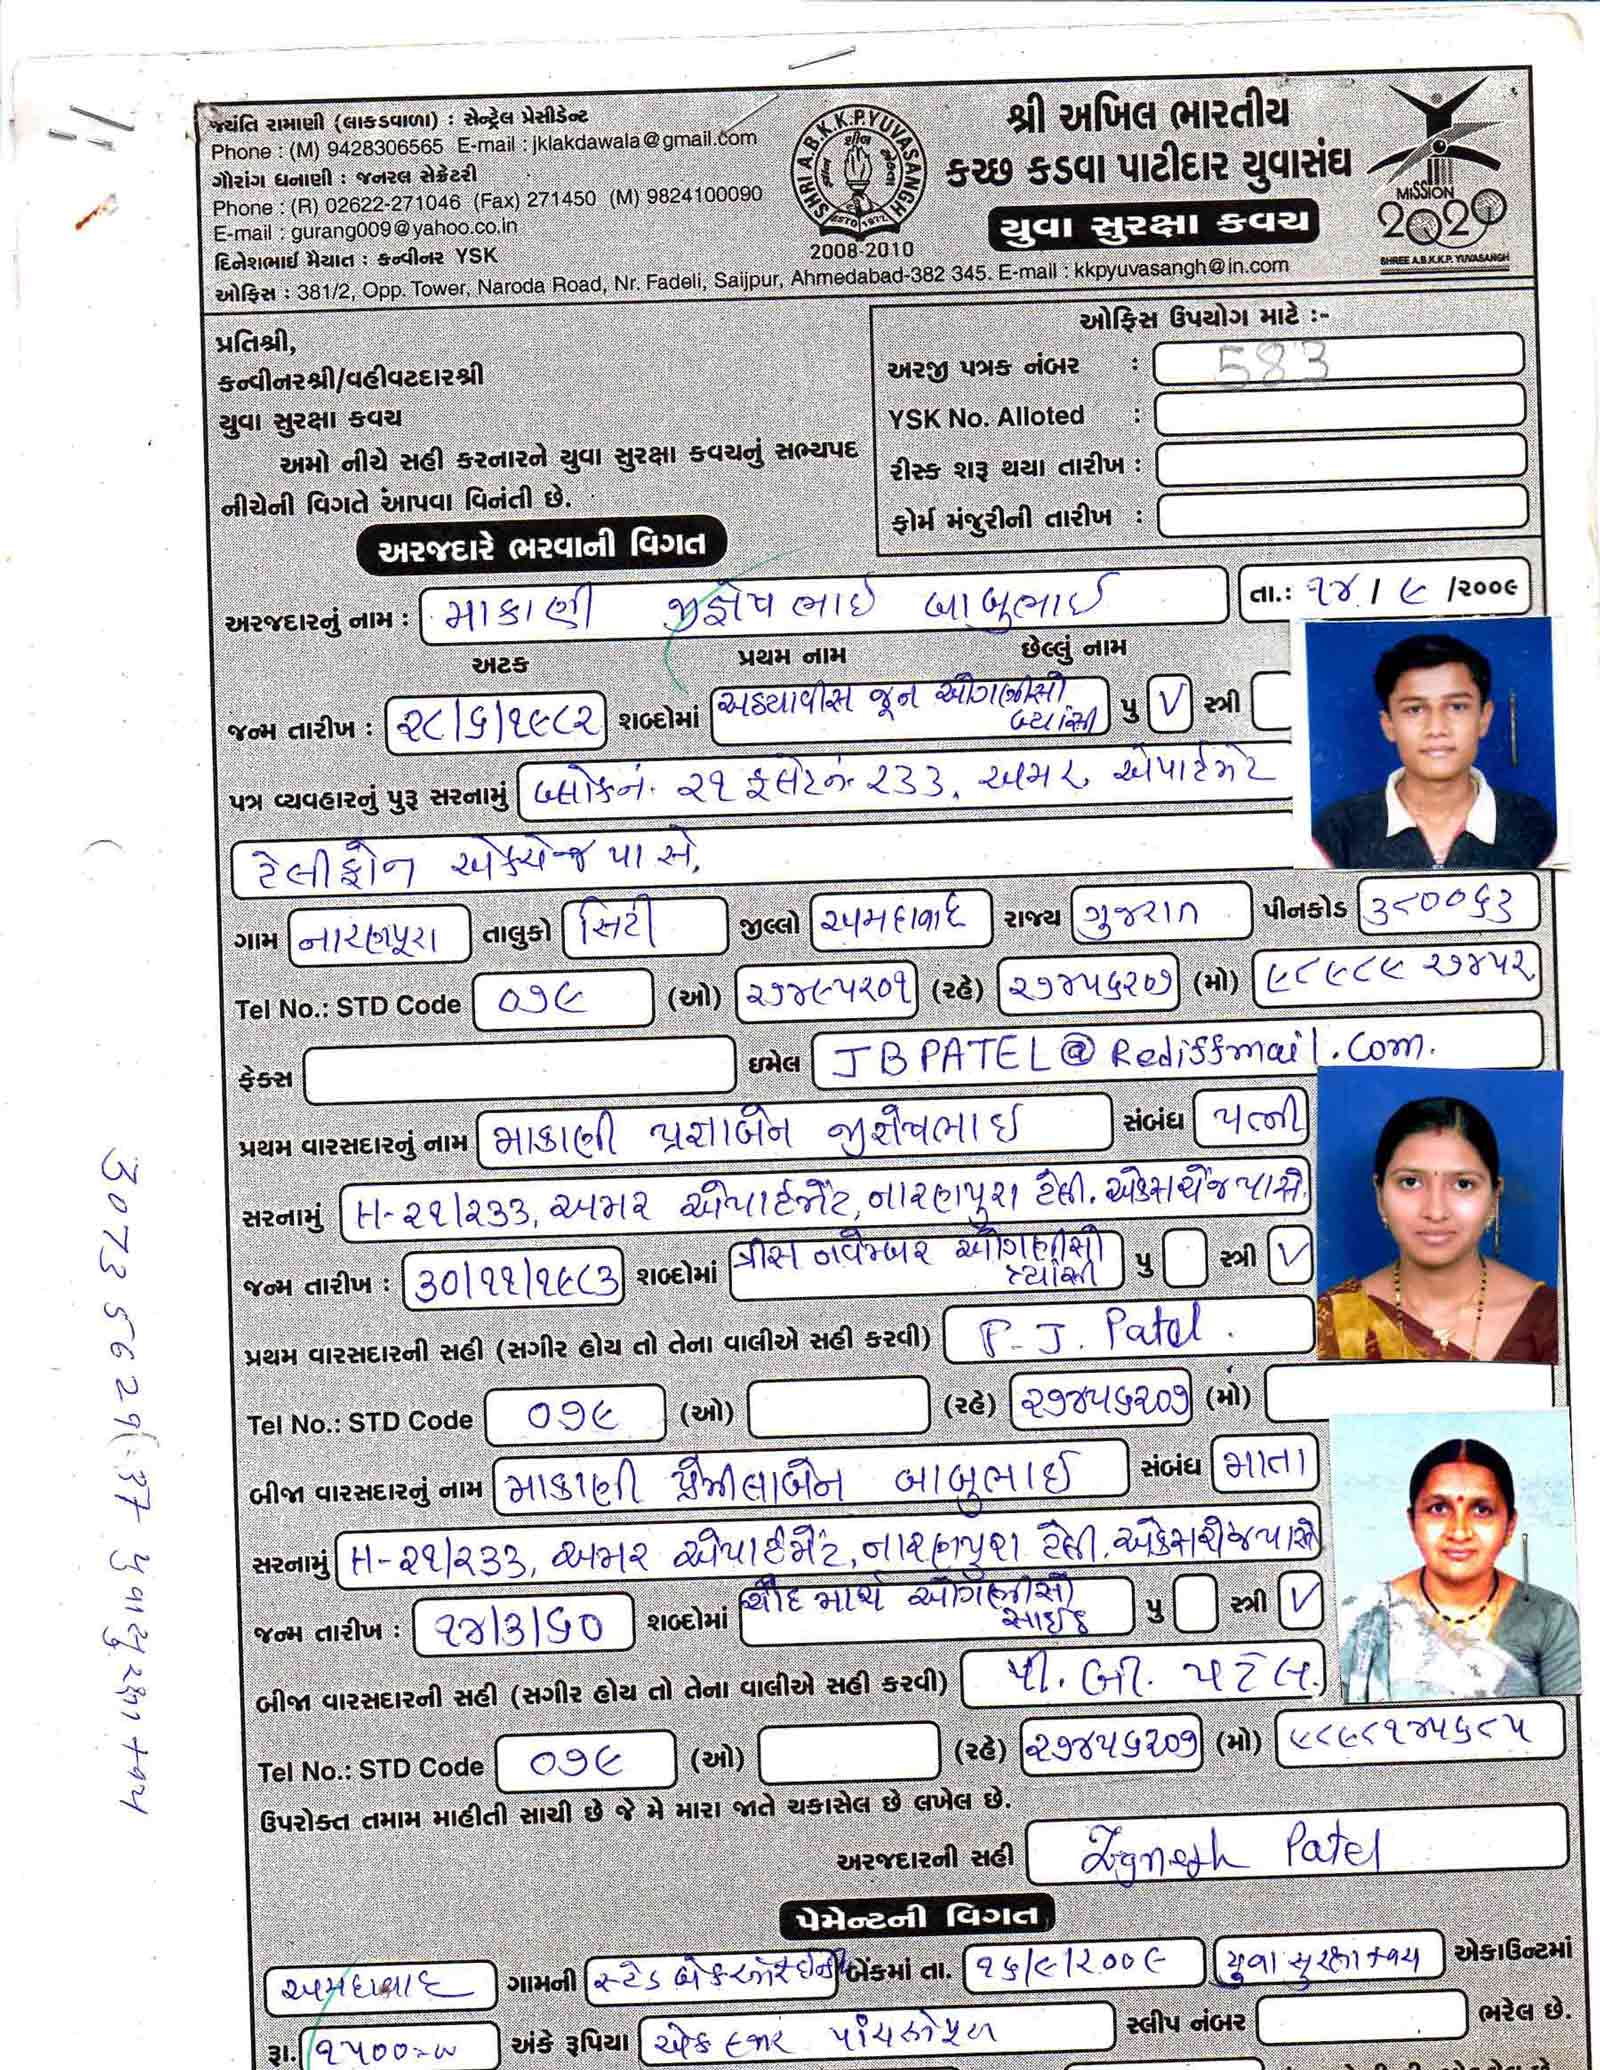 જયંતિ રામાણી (લાકડવાળા) : સેન્ટ્રેલ પ્રેસીડેન્ટ
Phone : (M) 9428306565 E-mail : jklakdawala@gmail.com
ગૌરાંગ ધનાણી : જનરલ સેક્રેટરી
Phone : (R) 02622-271046 (Fax) 271450 (M) 9824100090
E-mail : gurang009@yahoo.co.in
દિનેશભાઈ મૈયાત : કન્વીનર YSK
ઓફિસ : 381/2, Opp. Tower, Naroda Road, Nr. Fadeli, Saijpur, Ahmedabad-382 345. E-mail : kkpyuvasangh@in.com
SHRI A.B.K.K.P. YUVASANGH
ESTD 1977
2008-2010
શ્રી અખિલ ભારતીય
કચ્છ કડવા પાટીદાર યુવાસંઘ
યુવા સુરક્ષા કવચ
MISSION
2020
SHREE A.B.K.K.P. YUVASANGH
પ્રતિશ્રી,
કન્વીનરશ્રી/વહીવટદારશ્રી
યુવા સુરક્ષા કવચ
અમો નીચે સહી કરનારને યુવા સુરક્ષા કવચનું સભ્યપદ
નીચેની વિગતે આપવા વિનંતી છે.
ઓફિસ ઉપયોગ માટે :-
અરજી પત્રક નંબર : 583
YSK No. Alloted :
રીસ્ક શરૂ થયા તારીખ :
ફોર્મ મંજુરીની તારીખ :
અરજદારે ભરવાની વિગત
અરજદારનું નામ : માકાણી જીજ્ઞેષભાઇ બાબુભાઇ તા.: ૧૪ / ૯ /૨૦૦૯
અટક પ્રથમ નામ છેલ્લું નામ
જન્મ તારીખ : ૨૮/૬/૧૯૮૨ શબ્દોમાં અઠયાવીસ જૂન ઓગણીસો બ્યાંસી પુ V સ્ત્રી
પત્ર વ્યવહારનું પુરૂ સરનામું બ્લોકનં. ૨૧ ફલેટનં. ૨૩૩, અમર એપાર્ટમેટ
ટેલીફોન એક્ચેન્જ પાસે,
ગામ નારણપૂરા તાલુકો સિટી જીલ્લો અમદાવાદ રાજ્ય ગુજરાત પીનકોડ ૩૮૦૦૬૩
Tel No.: STD Code ૦૭૯ (ઓ) ૨૭૪૯૫૨૦૧ (રહે) ૨૭૪૫૬૨૦૭ (મો) ૯૮૯૮૯ ૨૭૪૫૨
ફેક્સ ઇમેલ JBPATEL@Rediffmail.Com.
પ્રથમ વારસદારનું નામ માકાણી પ્રજ્ઞાબેન જીજ્ઞેષભાઇ સંબંધ પત્ની
સરનામું H-૨૧/૨૩૩, અમર એપાર્ટમેંટ, નારણપુરા ટેલી. એક્સચેંજ પાસે.
જન્મ તારીખ : ૩૦/૧૧/૧૯૮૩ શબ્દોમાં ત્રીસ નવેમ્બર ઓગણીસો ત્યાંસી પુ સ્ત્રી V
પ્રથમ વારસદારની સહી (સગીર હોય તો તેના વાલીએ સહી કરવી) P.J. Patel.
Tel No.: STD Code ૦૭૯ (ઓ) (રહે) ૨૭૪૫૬૨૦૭ (મો)
બીજા વારસદારનું નામ માકાણી પ્રેમીલાબેન બાબુભાઇ સંબંધ માતા
સરનામું H-૨૧/૨૩૩, અમર એપાર્ટમેંટ, નારણપુરા ટેલી. એક્સચેંજ પાસે
જન્મ તારીખ : ૧૪/૩/૬૦ શબ્દોમાં ચૌદ માર્ચ ઓગણીસો સાઈઠ પુ સ્ત્રી V
બીજા વારસદારની સહી (સગીર હોય તો તેના વાલીએ સહી કરવી) પી. બી. પટેલ.
Tel No.: STD Code ૦૭૯ (ઓ) (રહે) ૨૭૪૫૬૨૦૭ (મો) ૯૮૯૮૧૪૫૬૮૫
ઉપરોક્ત તમામ માહીતી સાચી છે જે મે મારા જાતે ચકાસેલ છે લખેલ છે.
અરજદારની સહી Zgnesh Patel
પેમેન્ટની વિગત
અમદાવાદ ગામની બેંકમાં તા. ૧૬/૯/૨૦૦૯ યુવા સુરક્ષા કવચ એકાઉન્ટમાં
રૂા. ૧૫૦૦=૦૦ અંકે રૂપિયા એક હજાર પાંચસોપૂરા સ્લીપ નંબર ભરેલ છે.